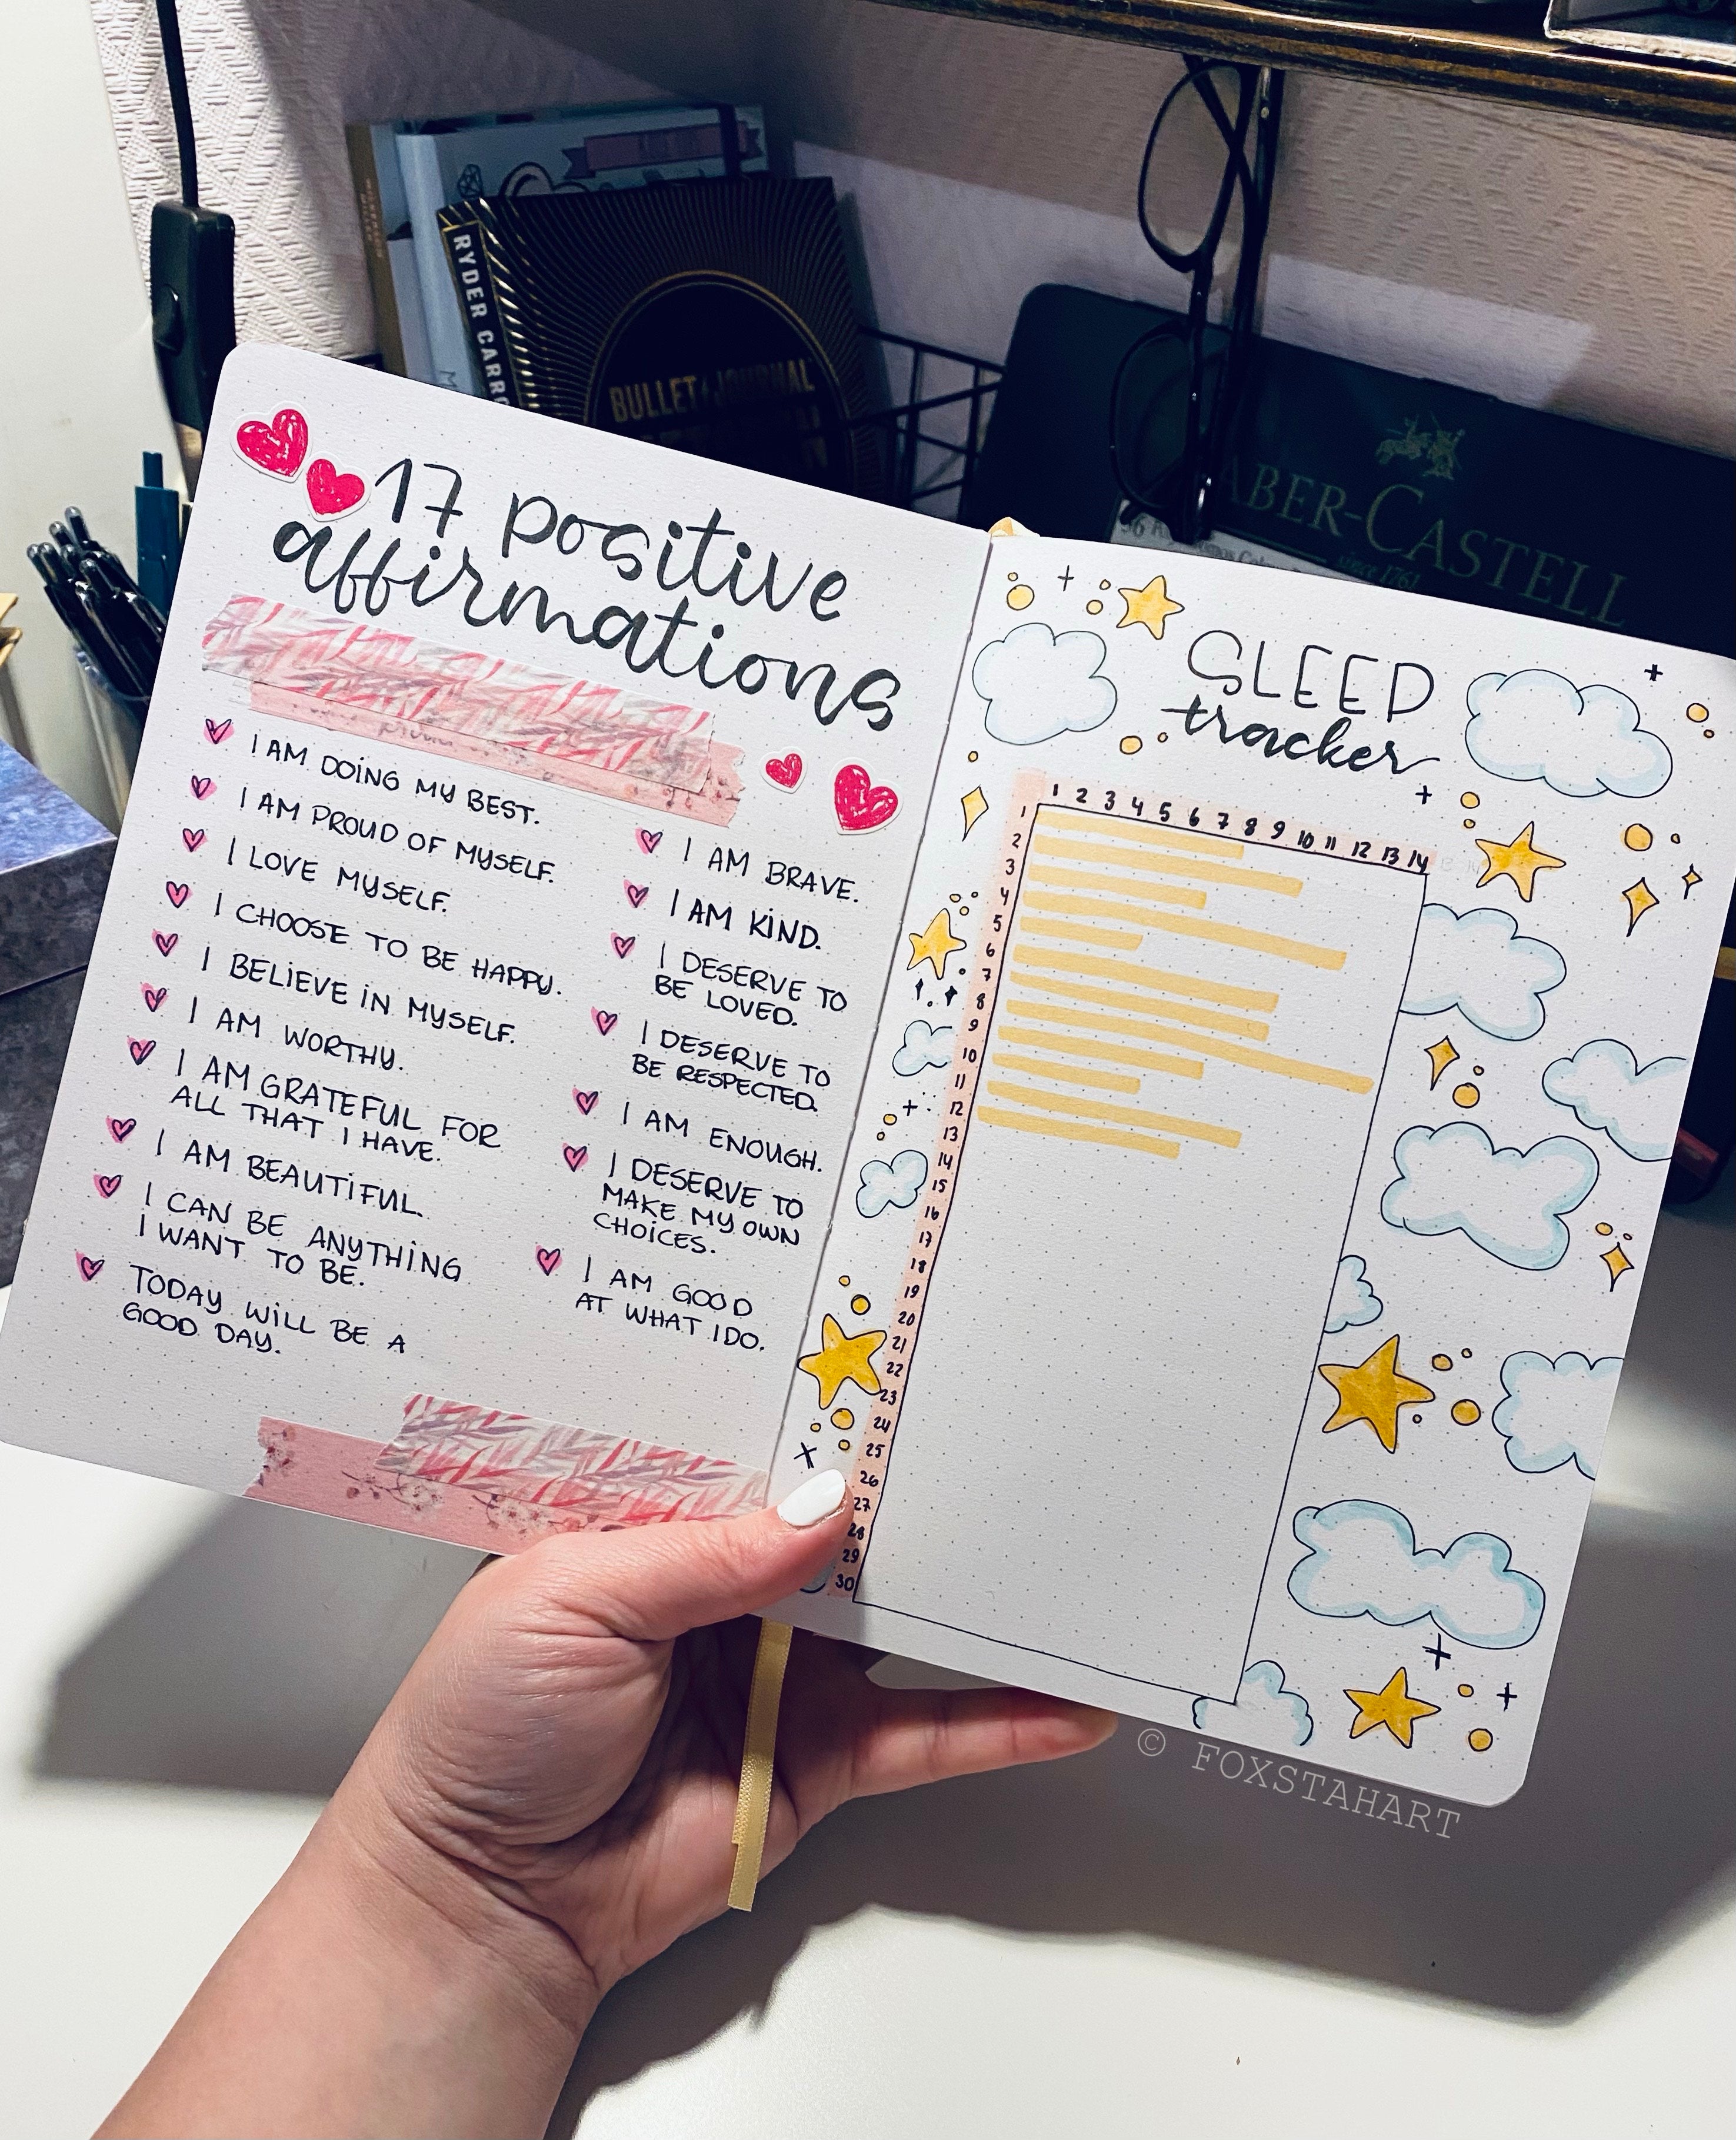 RYDER CARRO
BULLET JOURNAL
ABER-CASTELL
since 1761
17 positive
affirmations
I AM DOING MY BEST.
I AM PROUD OF MYSELF.
I LOVE MYSELF.
I CHOOSE TO BE HAPPY.
I BELIEVE IN MYSELF.
I AM WORTHY.
I AM GRATEFUL FOR
ALL THAT I HAVE.
I AM BEAUTIFUL.
I CAN BE ANYTHING
I WANT TO BE.
TODAY WILL BE A
GOOD DAY.
I AM BRAVE.
I AM KIND.
I DESERVE TO
BE LOVED.
I DESERVE TO
BE RESPECTED.
I AM ENOUGH.
I DESERVE TO
MAKE MY OWN
CHOICES.
I AM GOOD
AT WHAT I DO.
SLEEP
tracker
1 2 3 4 5 6 7 8 9 10 11 12 13 14
1
2
3
4
5
6
7
8
9
10
11
12
13
14
15
16
17
18
19
20
21
22
23
24
25
26
27
28
29
30
© FOXSTAHART